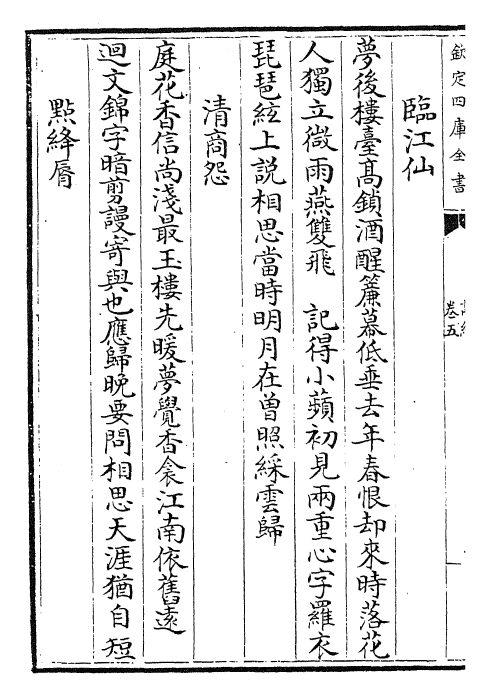 欽定四庫全書
卷五
臨江仙
夢後樓臺髙鎖酒醒簾幕低垂去年春恨却來時落花
人獨立微雨燕雙飛　記得小蘋初見兩重心字羅衣
琵琶絃上説相思當時明月在曾照綵雲歸
清商怨
庭花香信尚淺最玉樓先暖夢覺香衾江南依舊逺
迴文錦字暗剪謾寄與也應歸晚要問相思天涯猶自短
點絳脣